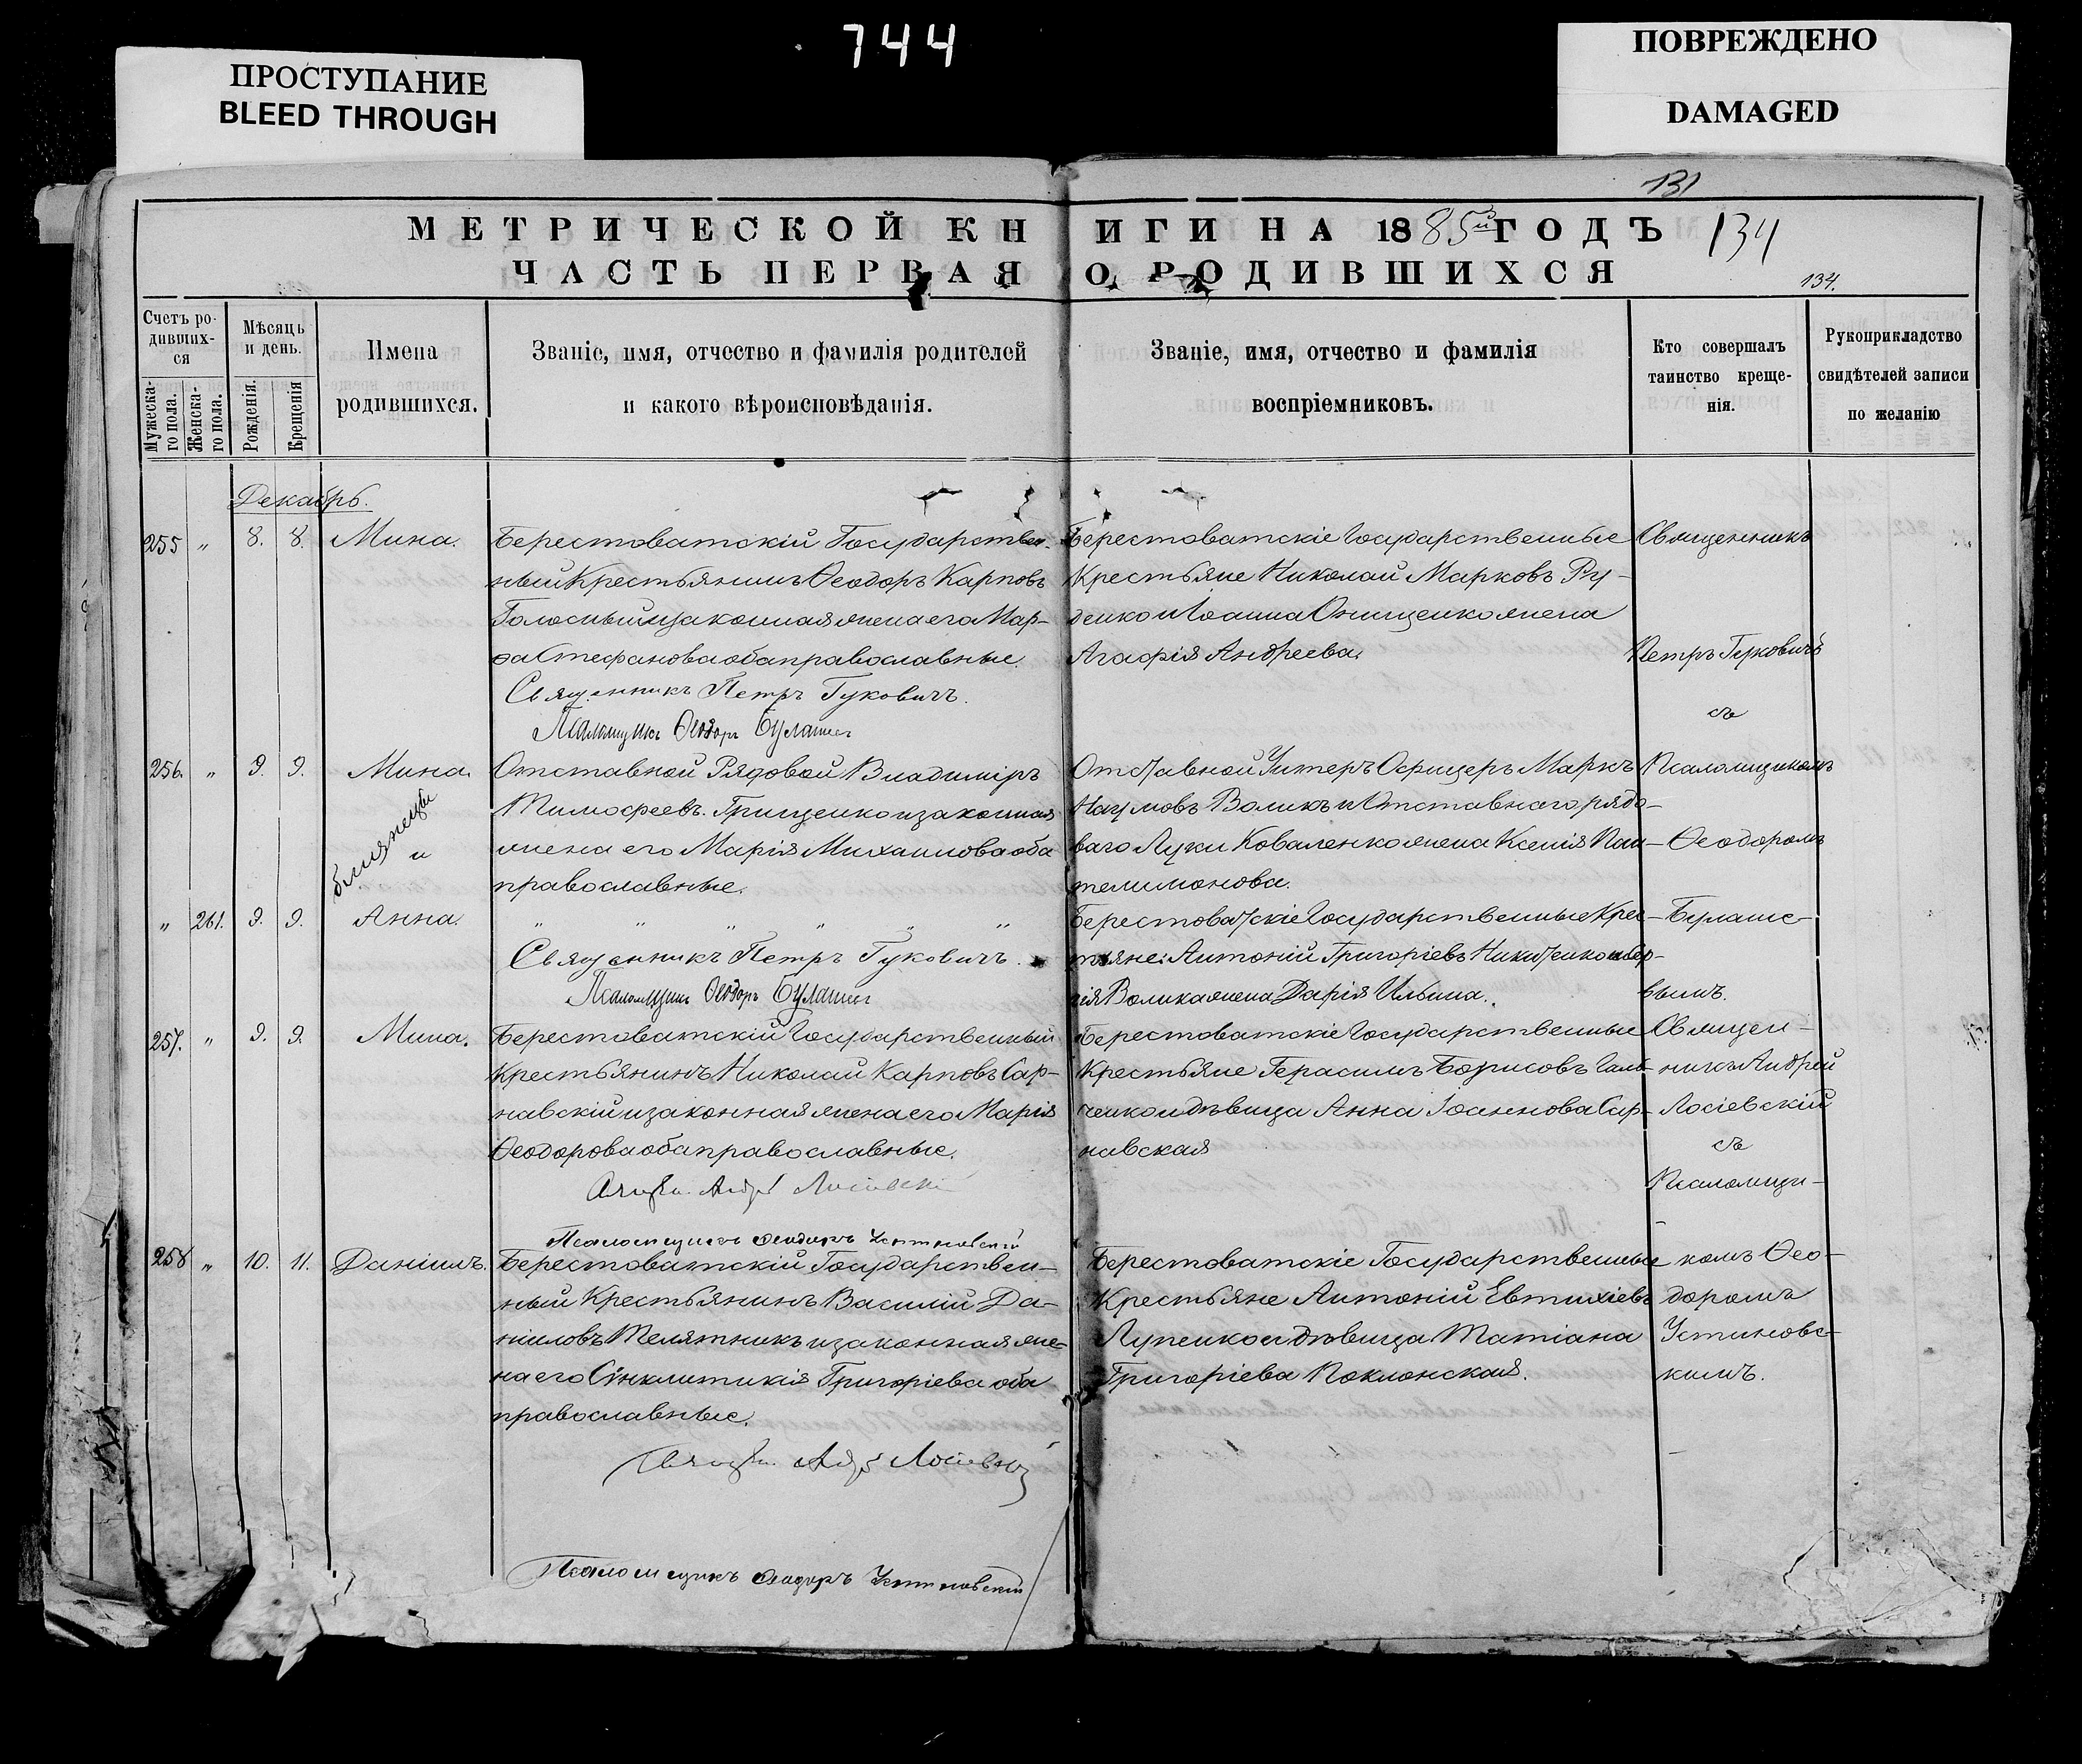 744
ПРОСТУПАНИЕ
BLEED THROUGH
ПОВРЕЖДЕНО
DAMAGED
131
МЕТРИЧЕСКОЙ КНИГИ НА 1885й ГОДЪ
134
ЧАСТЬ ПЕРВАЯ О РОДИВШИХСЯ
134.
Счетъ родившихся
Мужескаго пола.
Женскаго пола.
Мѣсяць и день.
Рожденія.
Крещенія
Имена
родившихся.
Званіе, имя, отчество и фамилія родителей
и какого вѣроисповѣданія.
Званіе, имя, отчество и фамилія
воспріемниковъ.
Кто совершалъ
таинство креще-
нія.
Рукоприкладство
свидѣтелей записи
по желанію
Декабрь.
255 " 8. 8. Мина.
Берестоватскій Государствен-
ный Крестьянинъ Ѳеодоръ Карповъ
Голосный и законная жена его Мар-
ѳа Стефанова оба православные.
Священникъ Петръ Гуковичъ.
Псаломщикъ Ѳеодоръ Булашев
Берестоватскіе Государственные
Крестьяне Николай Марковъ Ру-
денко и Іоанна Онищенко жена
Агафія Андреева.
Священникъ
Петръ Гуковичъ
съ
256. " 9. 9. Мина.
близнецы
и
Отставной Рядовой Владиміръ
Тимофеевъ Грищенко и законная
жена его Марія Михаилова оба
православные.
Отставной Унтеръ Офицеръ Маркъ
Наумовъ Воликъ и Отставнаго рядо-
ваго Луки Коваленко жена Ксенія Пан-
телимонова.
Псаломщикомъ
Ѳеодоромъ
" 261. 9. 9. Анна.
" " " " " "
Священникъ Петръ Гуковичъ.
Псаломщикъ Ѳеодоръ Булашев
Берестоватскіе Государственные Крес-
тьяне: Антоній Григоріевъ Никитенко и Сер-
гія Волика жена Дарія Ильина.
Булаше-
вымъ.
257. " 9. 9. Мина.
Берестоватскій Государственный
Крестьянинъ Николай Карповъ Сар-
навскій и законная жена его Марія
Ѳеодорова оба православные.
Псаломщикъ Ѳеодоръ Устиновскій
Берестоватскіе Государственные
Крестьяне Герасимъ Борисовъ Галь-
ченко и дѣвица Анна Іоаннова Сар-
навская
Священ-
никъ Андрей
Лосіевскій
съ
Псаломщи-
258 " 10. 11. Даніилъ.
Берестоватскій Государствен-
ный Крестьянинъ Василій Да-
ніиловъ Телятникъ и законная же-
на его Сѵнклитикія Григоріева оба
православные.
Псаломщикъ Ѳеодоръ Устиновскій
Берестоватскіе Государственные
Крестьяне Антоній Евтихіевъ
Лупенко и дѣвица Татіана
Григоріева Поклонская.
комъ Ѳео-
доромъ
Устиновс-
кимъ.